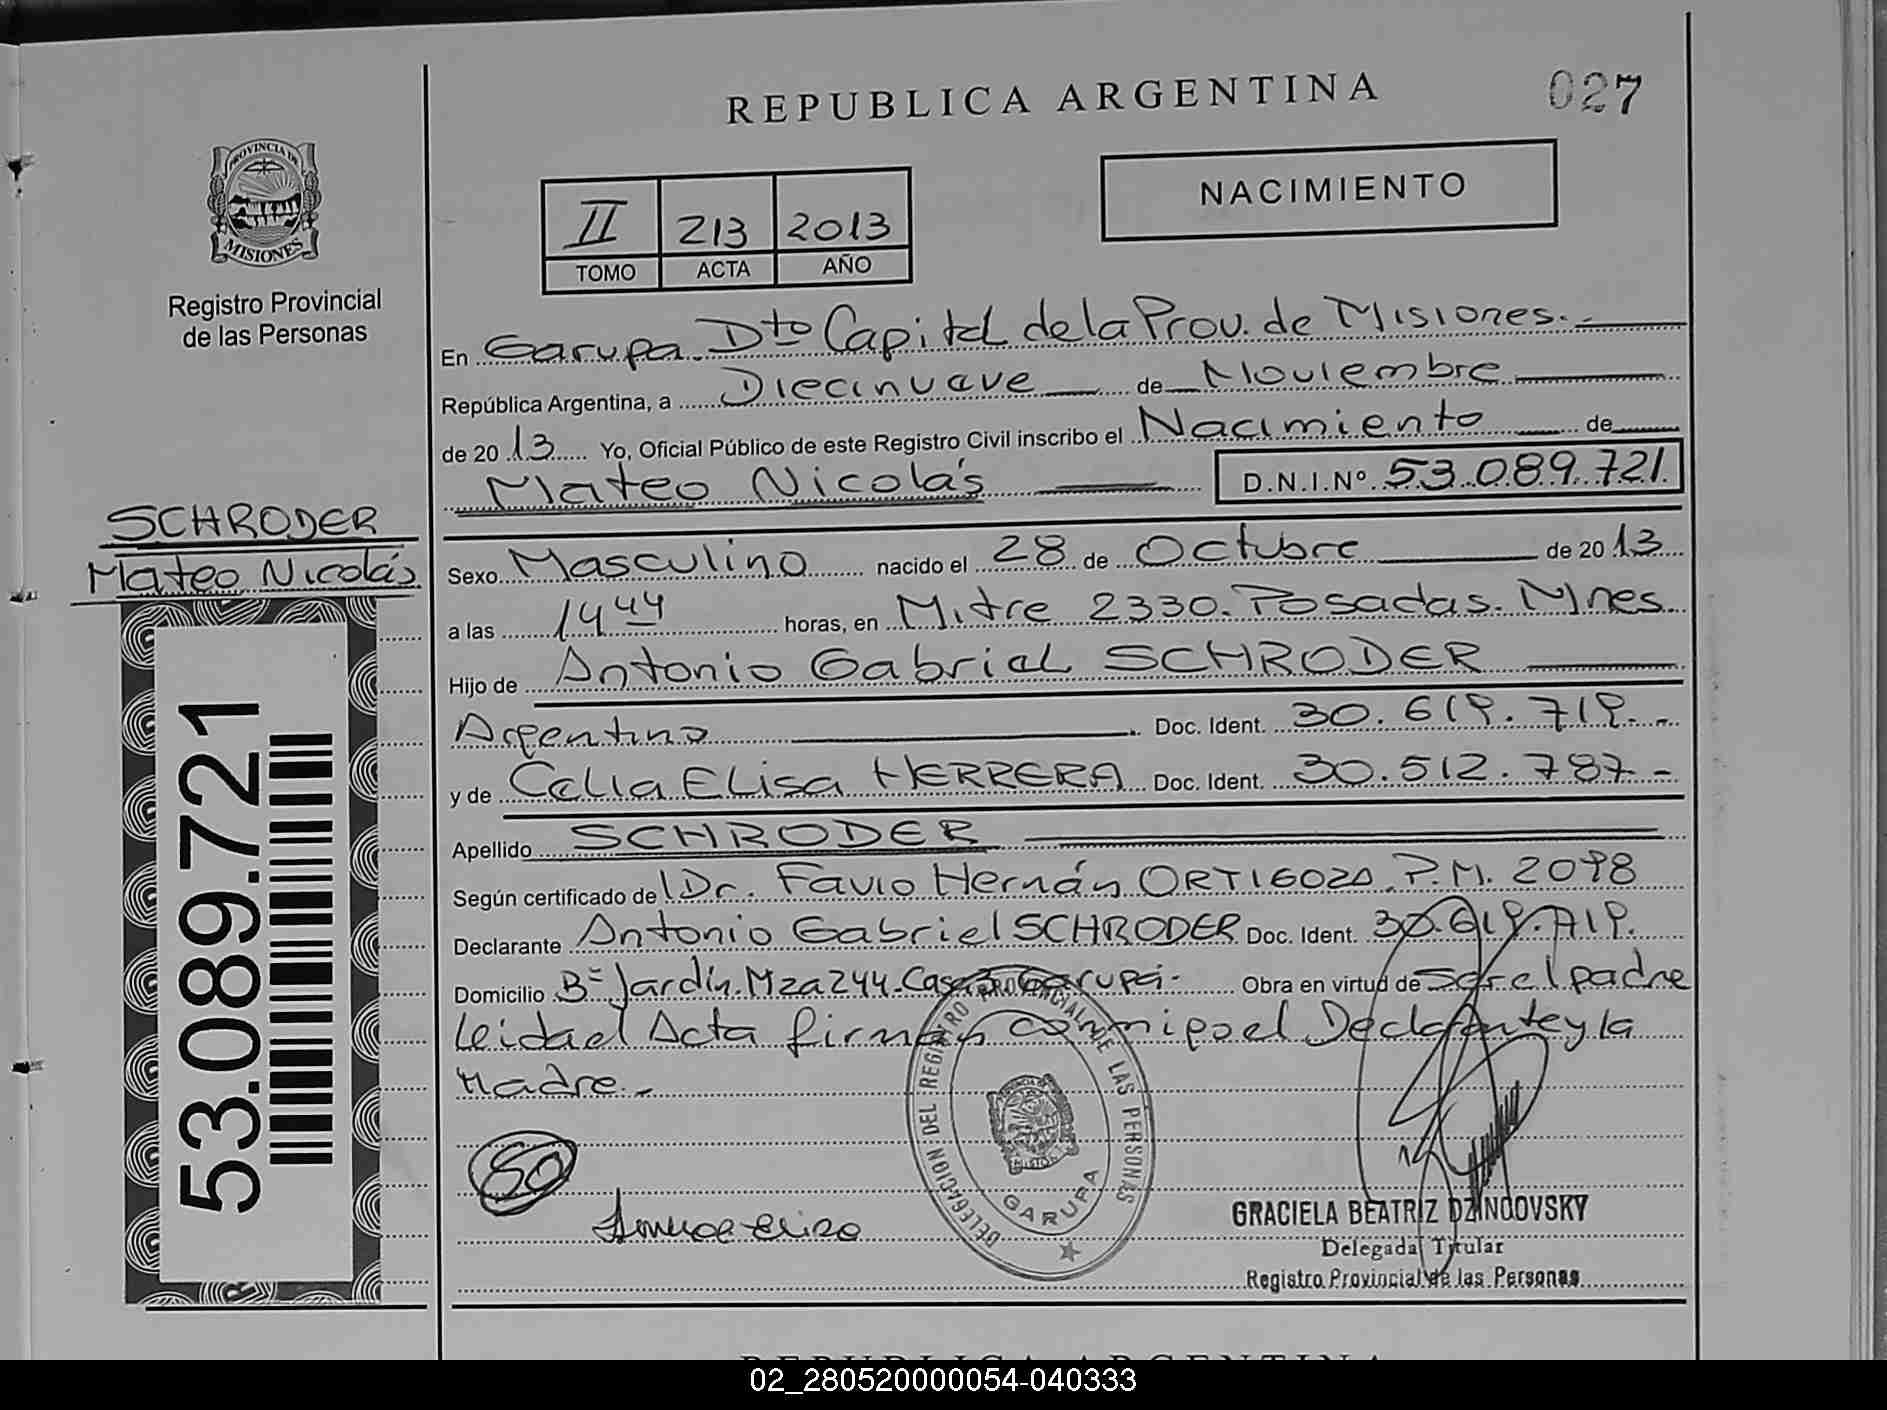 REPUBLICA ARGENTINA
027
PROVINCIA DE
MISIONES
Registro Provincial
de las Personas
II 213 2013
TOMO ACTA AÑO
NACIMIENTO
En Garupa Dto Capital de la Prov. de Misiones.-
República Argentina, a Diecinueve de Noviembre
de 20 13 Yo, Oficial Público de este Registro Civil inscribo el Nacimiento de
Mateo Nicolás D.N.I.Nº 53.089.721
SCHRODER
Mateo Nicolás
53.089.721
Sexo Masculino nacido el 28 de Octubre de 20 13
a las 14 44 horas, en Mitre 2330. Posadas. Mnes
Hijo de Antonio Gabriel SCHRODER
Argentino Doc. Ident. 30.619.719.-
y de Celia Elisa HERRERA Doc. Ident. 30.512.787-
Apellido SCHRODER
Según certificado del Dr. Favio Hernán ORTIGOZA. P.M. 2098
Declarante Antonio Gabriel SCHRODER Doc. Ident. 30.619.719.
Domicilio Bº Jardín. Mza 244. Casa 3 Garupá- Obra en virtud de Ser el padre
leida el Acta firman conmigo el Declarante y la
Madre.-
DELEGACION DEL REGISTRO PROVINCIAL DE LAS PERSONAS
GARUPA
GRACIELA BEATRIZ DZINDOVSKY
Delegada Titular
Registro Provincial de las Personas
REPUBLICA ARGENTINA
02_280520000054-040333